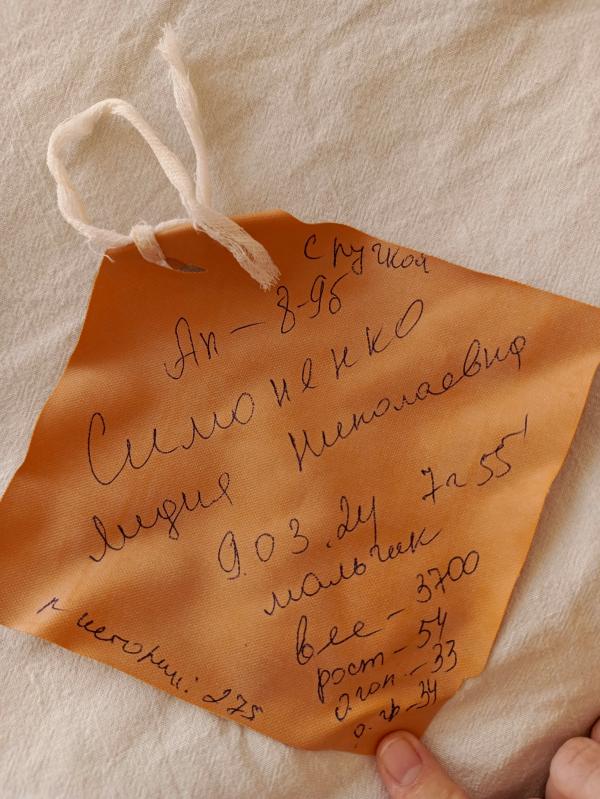 с ручкой
Ап - 8-9б
Симоненко
Лидия Николаевна
9.03.24 7ч 55'
мальчик
вес - 3700
рост - 54
о.гол. - 33
о. гр - 34
№ истории: 275